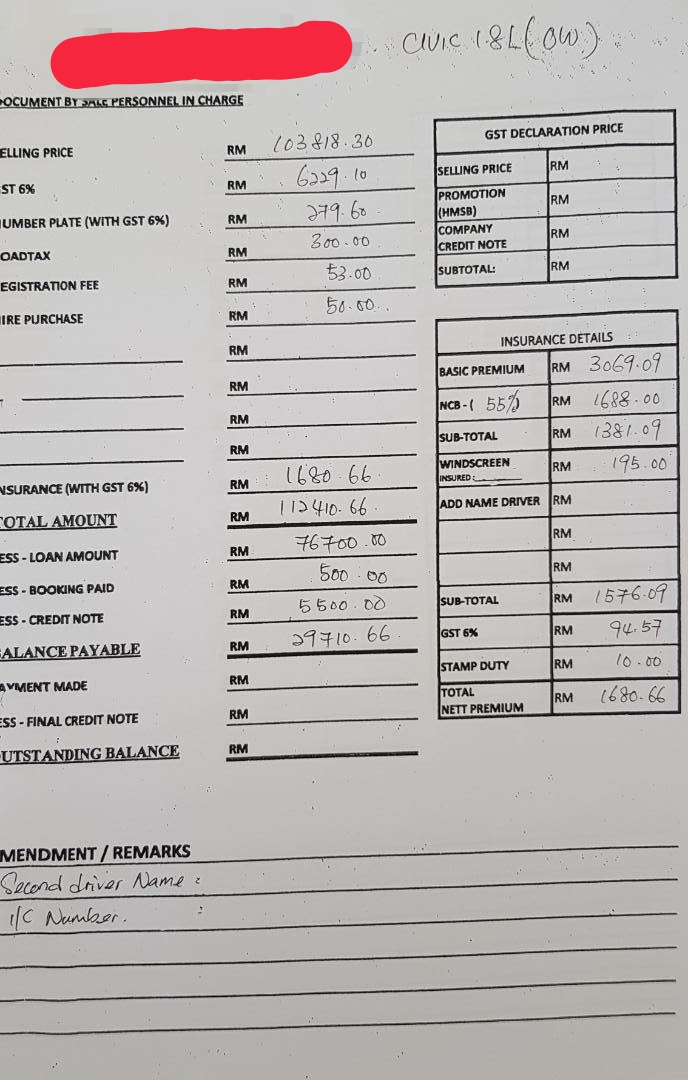 CIVIC 1.8L (OW)
OCUMENT BY SALE PERSONNEL IN CHARGE
ELLING PRICE RM 103818.30
ST 6% RM 6229.10
UMBER PLATE (WITH GST 6%) RM 279.60
OADTAX RM 300.00
EGISTRATION FEE RM 53.00
IRE PURCHASE RM 50.00
RM
RM
RM
RM
NSURANCE (WITH GST 6%) RM 1680.66
OTAL AMOUNT RM 112410.66
ESS - LOAN AMOUNT RM 76700.00
ESS - BOOKING PAID RM 500.00
ESS - CREDIT NOTE RM 5500.00
ALANCE PAYABLE RM 29710.66
AYMENT MADE RM
ESS - FINAL CREDIT NOTE RM
UTSTANDING BALANCE RM
GST DECLARATION PRICE
SELLING PRICE RM
PROMOTION (HMSB) RM
COMPANY CREDIT NOTE RM
SUBTOTAL: RM
INSURANCE DETAILS
BASIC PREMIUM RM 3069.09
NCB - ( 55%) RM 1688.00
SUB-TOTAL RM 1381.09
WINDSCREEN RM 195.00
INSURED:
ADD NAME DRIVER RM
RM
RM
SUB-TOTAL RM 1576.09
GST 6% RM 94.57
STAMP DUTY RM 10.00
TOTAL NETT PREMIUM RM 1680.66
MENDMENT / REMARKS
Second driver Name :
I/C Number. :